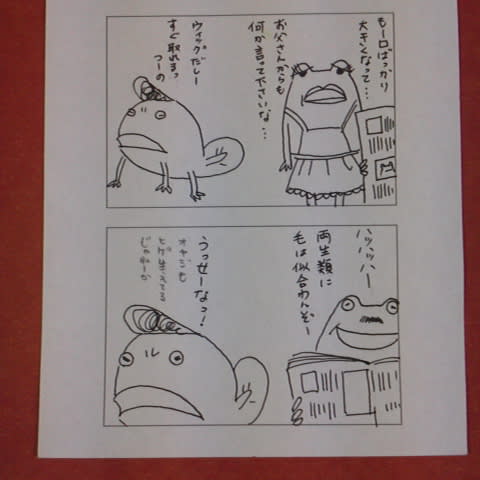 もー口ばっかり
大きくなって…
お父さんからも
何か言って下さいな…
ウィッグだしー
すぐ取れるっ
つーの
ハッハッハー
両生類に
毛は似合わんぞー
うっせーなっ!
オヤジも
ヒゲ生えてる
じゃねーか